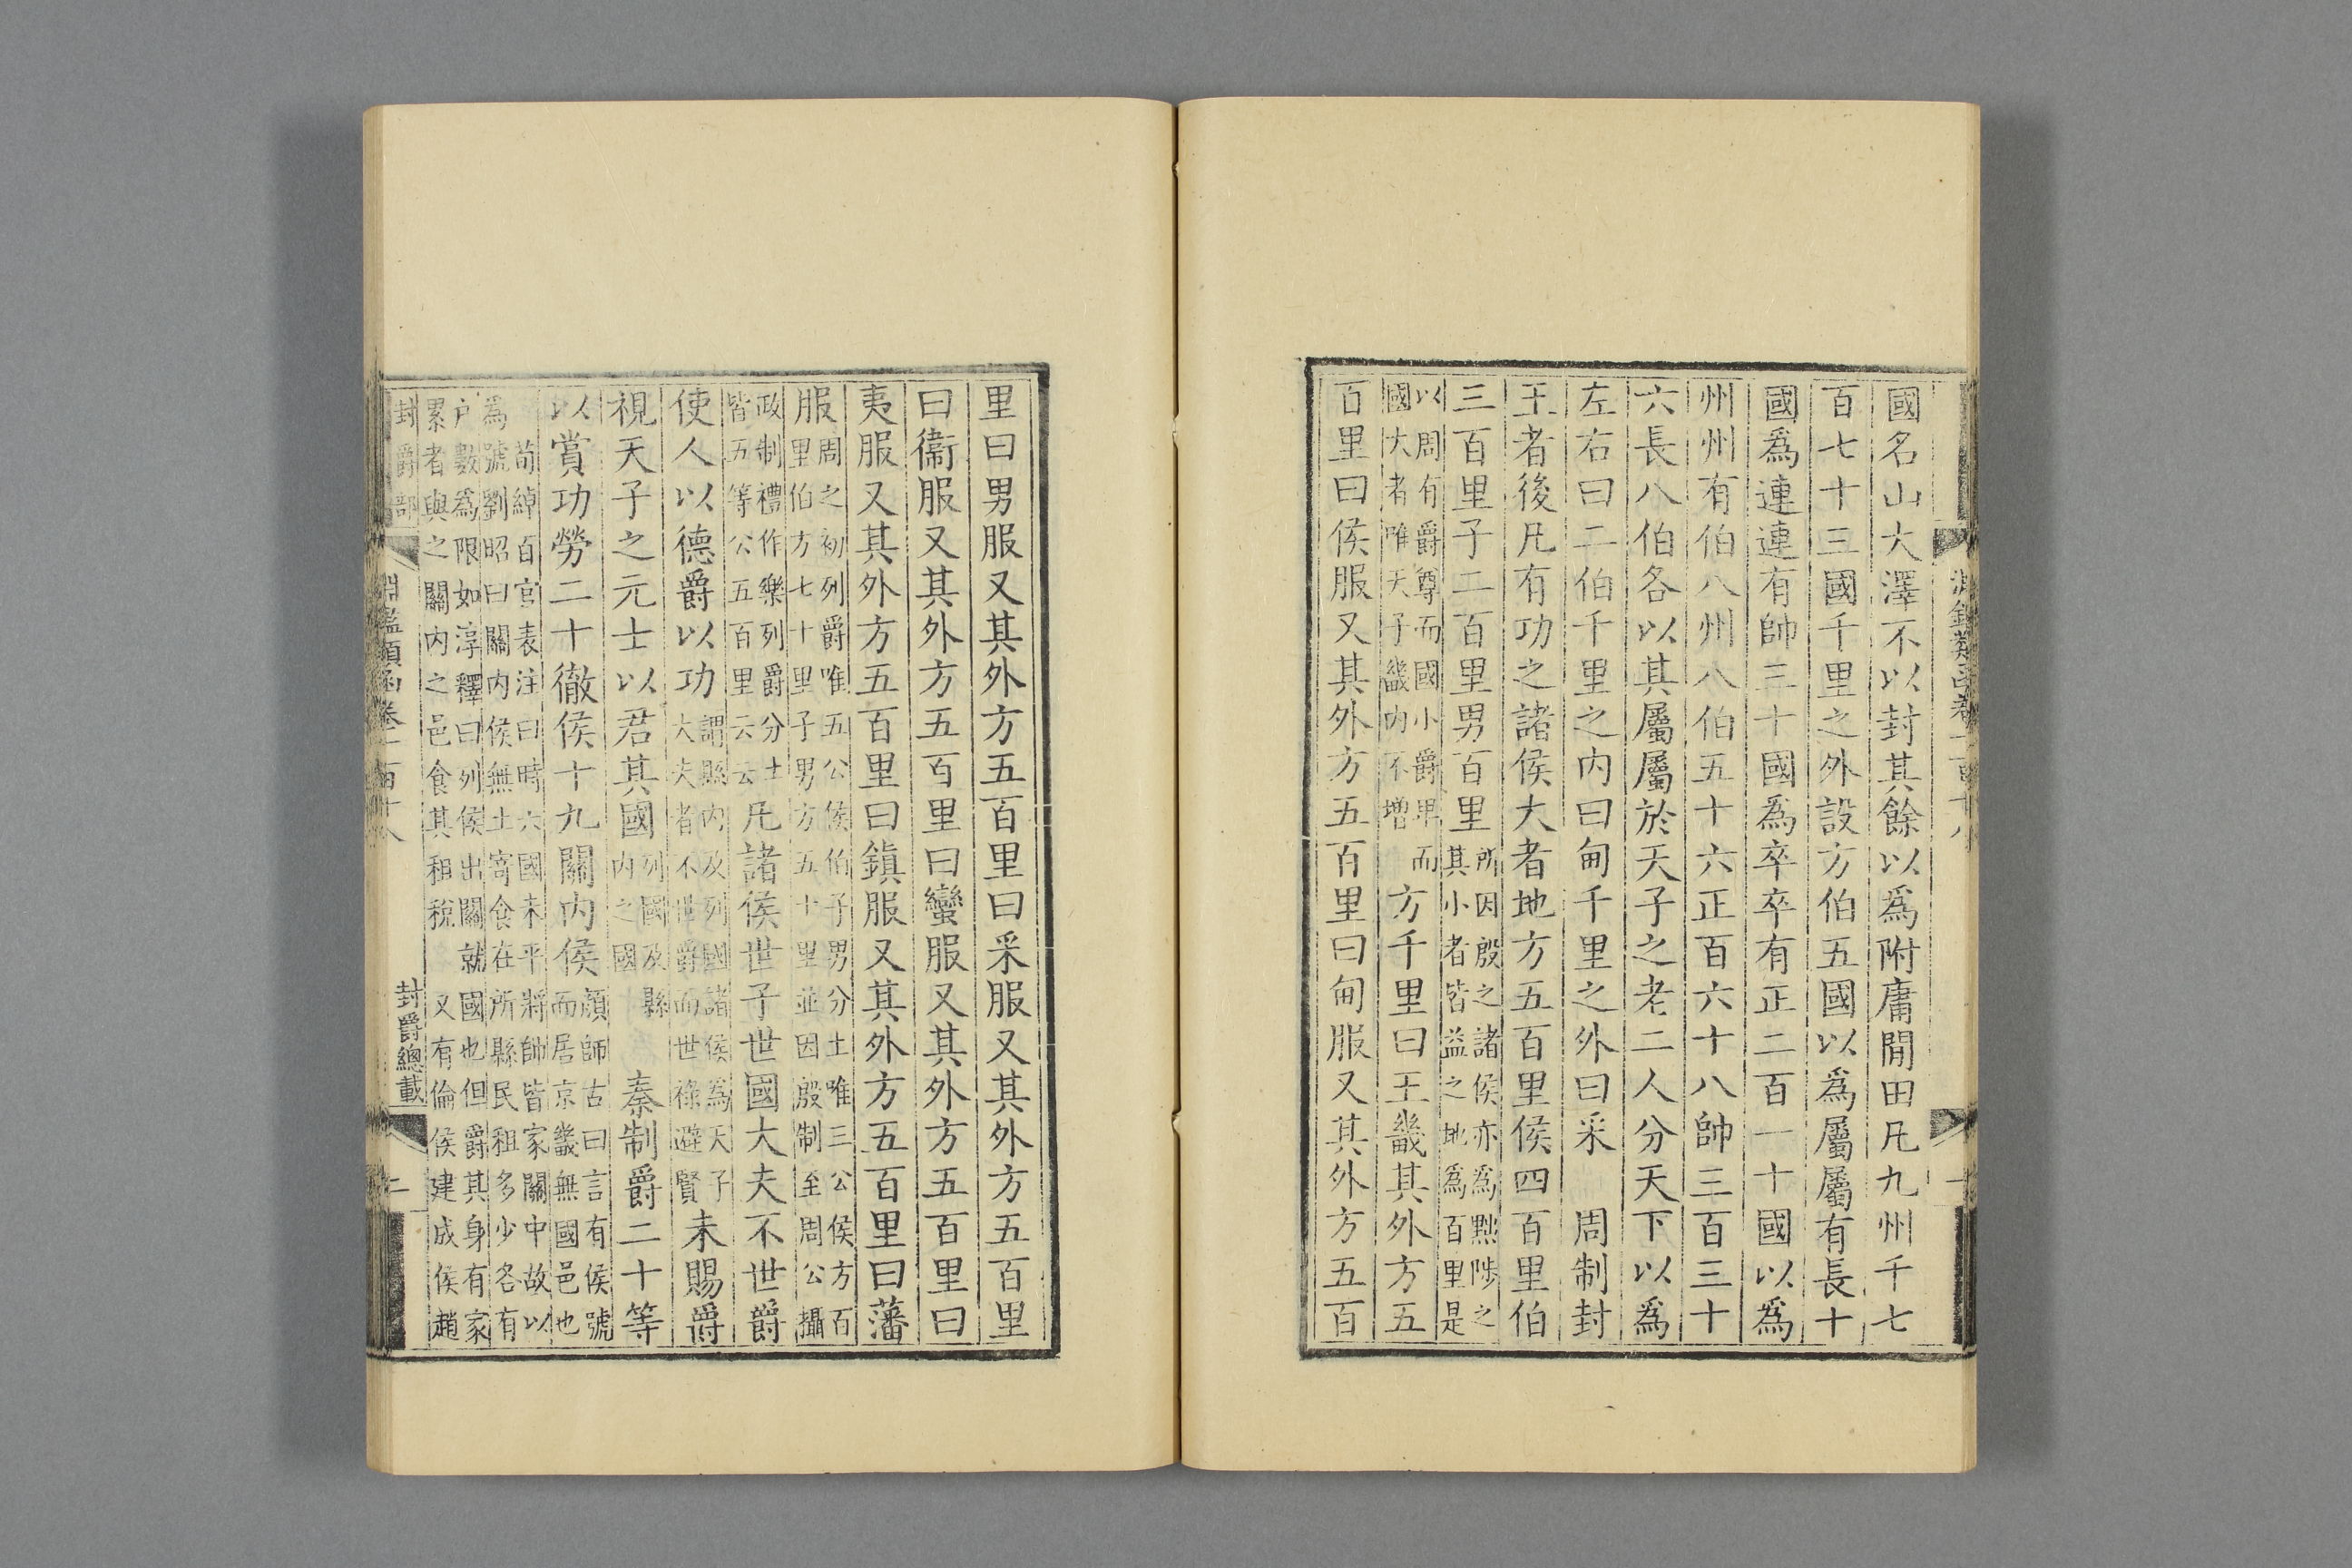 國名山大澤不以封其餘以爲附庸閒田凡九州千七
百七十三國千里之外設方伯五國以爲屬屬有長十
國爲連連有帥三十國爲卒卒有正二百一十國以爲
州州有伯八州八伯五十六正百六十八帥三百三十
六長八伯各以其屬屬於天子之老二人分天下以爲
左右曰二伯千里之内曰甸千里之外曰采　周制封
王者後凡有功之諸侯大者地方五百里侯四百里伯
三百里子二百里男百里
所因殷之諸侯亦為黜陟之
其小者皆益之地為百里是
以周有爵尊而國小爵卑而
國大者唯天子畿内不增
方千里曰王畿其外方五
百里曰侯服又其外方五百里曰甸服又其外方五百
里曰男服又其外方五百里曰采服又其外方五百里
曰衞服又其外方五百里曰蠻服又其外方五百里曰
夷服又其外方五百里曰鎮服又其外方五百里曰藩
服
周之初列爵唯五公侯伯子男分土唯三公侯方百
里伯方七十里子男方五十里並因殷制至周公攝
政制禮作樂列爵分土
皆五等公五百里云云
凡諸侯世子世國大夫不世爵
使人以德爵以功
謂縣内及列國諸侯為天子
大夫者不世爵而世祿避賢
未賜爵
視天子之元士以君其國
列國及縣
内之國
秦制爵二十等
以賞功勞二十徹侯十九關内侯
顔師古曰言有侯號
而居京畿無國邑也
荀綽百官表注曰時六國未平將帥皆家關中故以
為號劉昭曰關内侯無土寄食在所縣民租多少各有
户數為限如淳釋曰列侯出關就國也但爵其身有家
累者與之關内之邑食其租稅　又有倫侯建成侯趙
封爵部
淵鑑類函卷一百十八
封爵總載
二